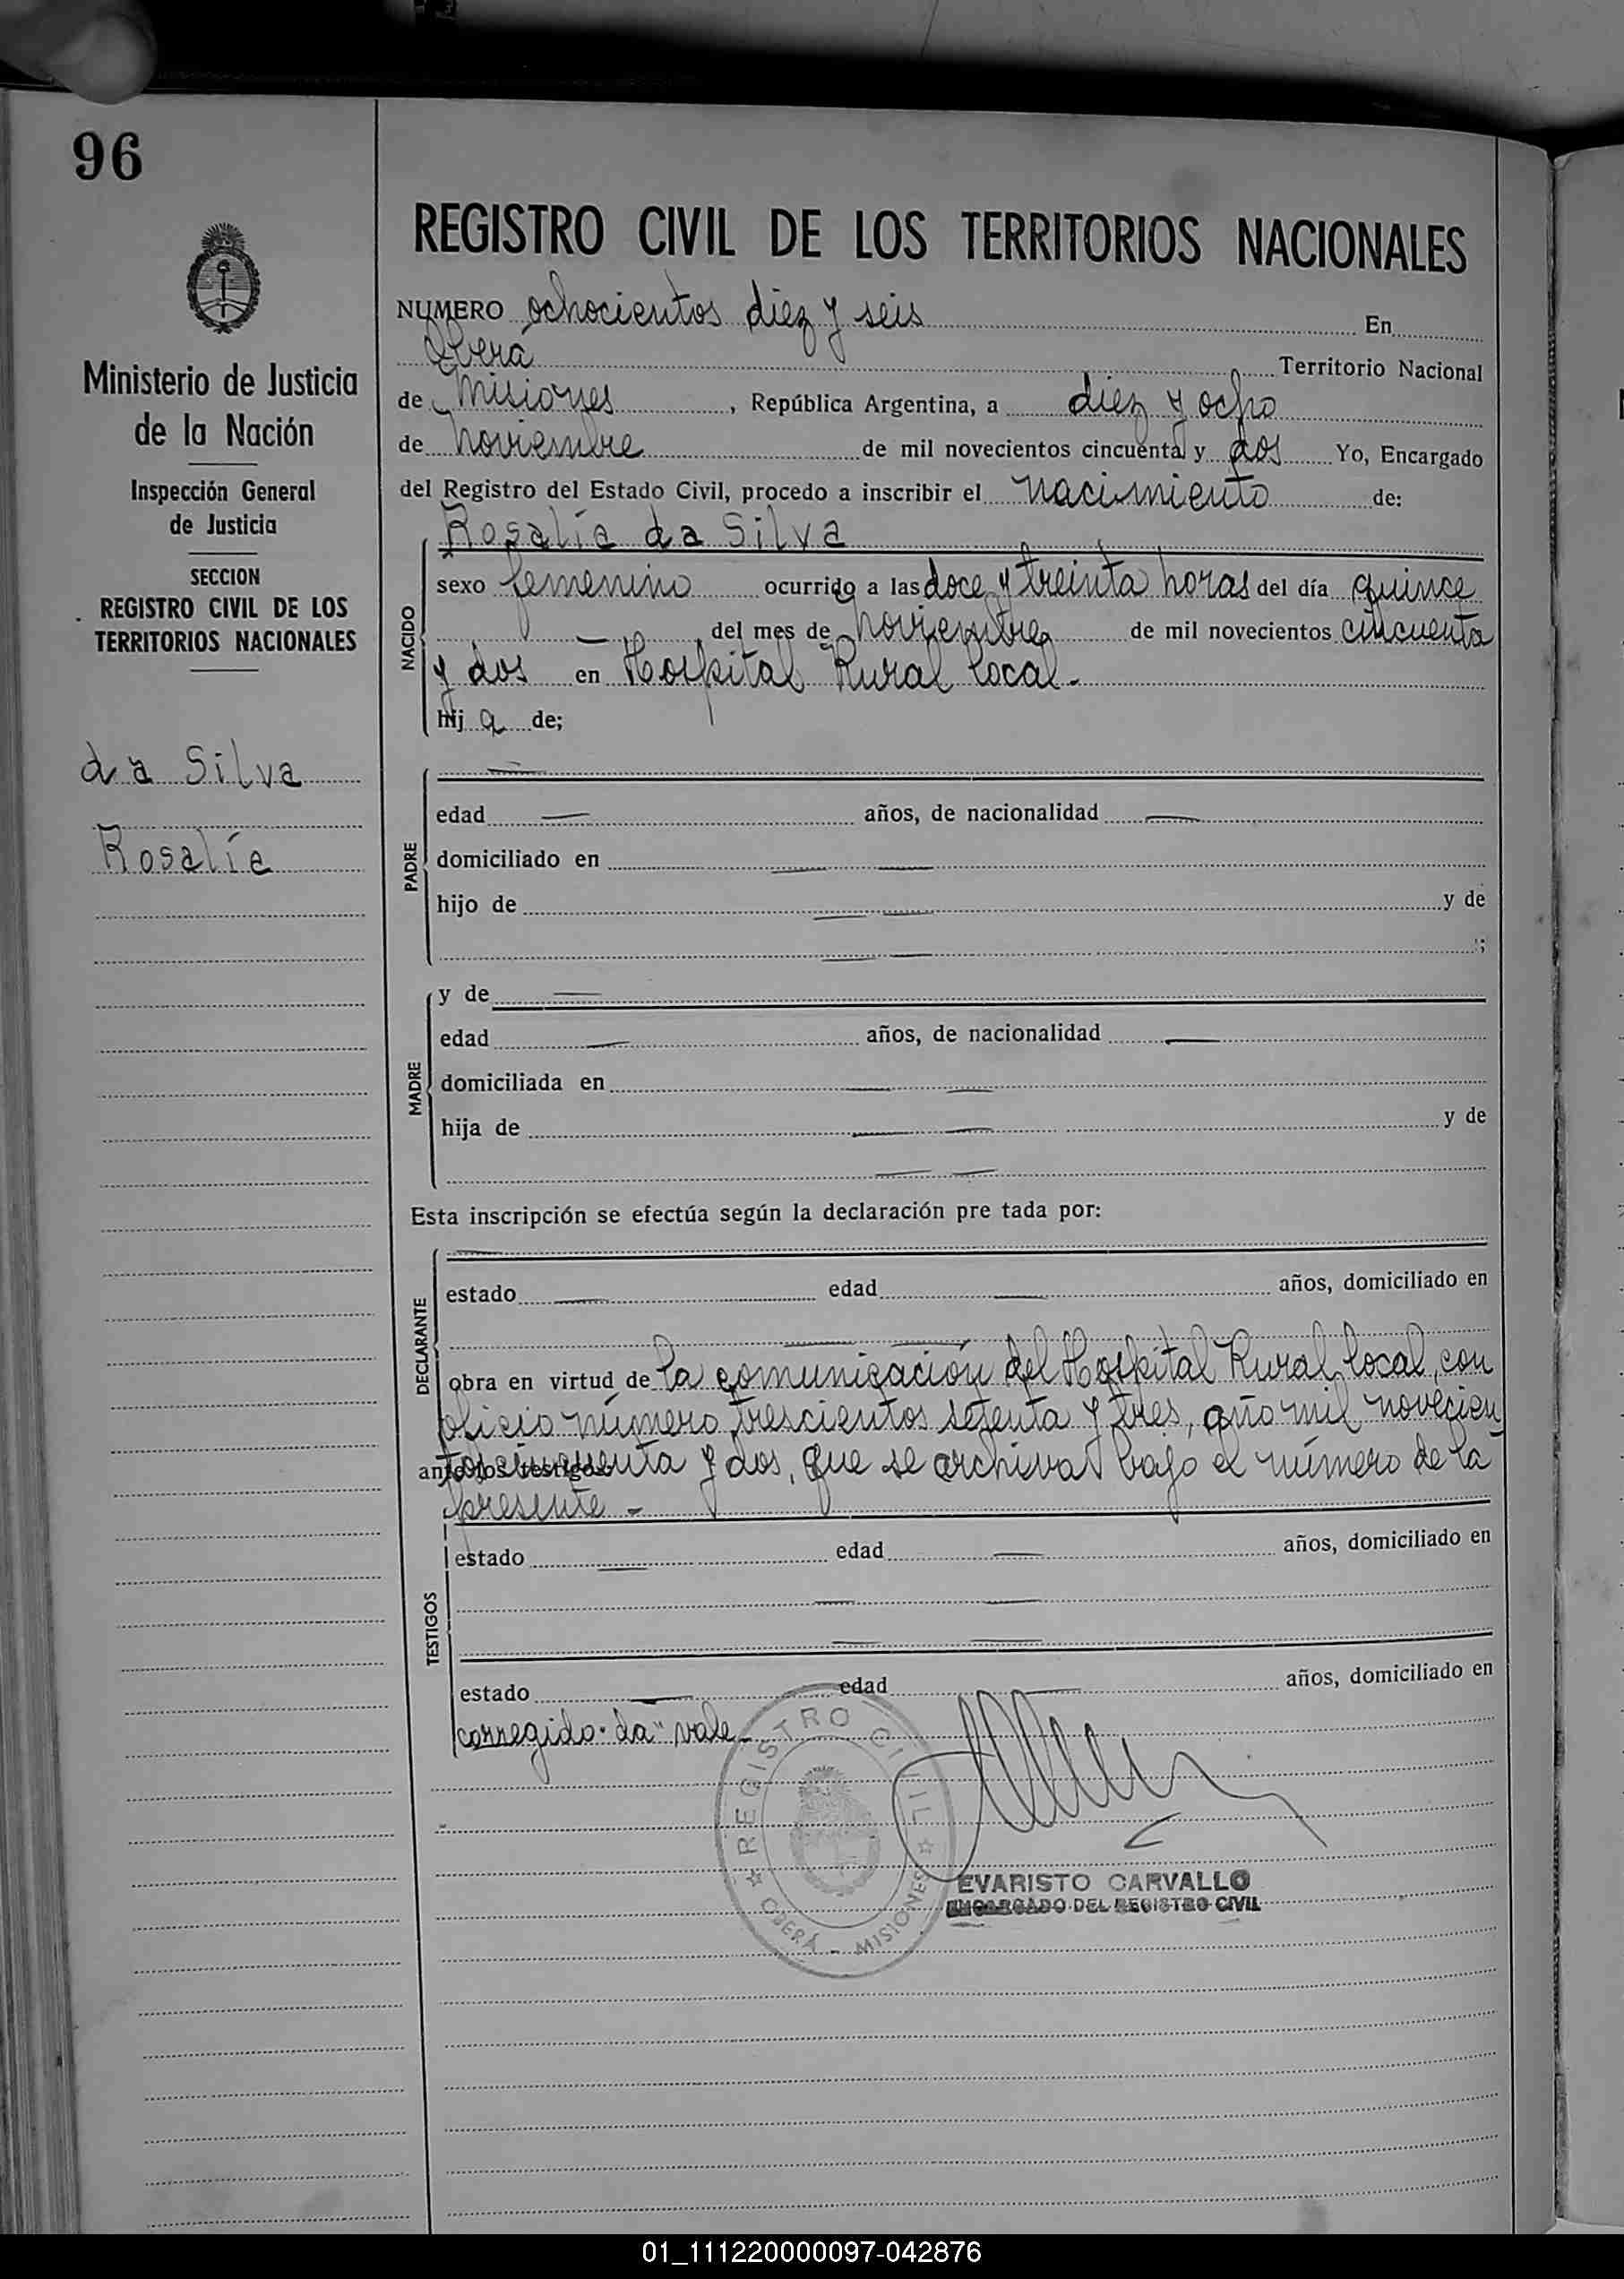 96
Ministerio de Justicia
de la Nación
Inspección General
de Justicia
SECCION
REGISTRO CIVIL DE LOS
TERRITORIOS NACIONALES
da Silva
Rosalía
REGISTRO CIVIL DE LOS TERRITORIOS NACIONALES
NUMERO ochocientos diez y seis En
Oberá Territorio Nacional
de Misiones, República Argentina, a diez y ocho
de noviembre de mil novecientos cincuenta y dos Yo, Encargado
del Registro del Estado Civil, procedo a inscribir el nacimiento de:
Rosalía da Silva
NACIDO
sexo femenino ocurrido a las doce y treinta horas del día quince
— del mes de noviembre de mil novecientos cincuenta
y dos en Hospital Rural local.-
hij a de;
PADRE
—
edad — años, de nacionalidad —
domiciliado en — —
hijo de — — y de
— — ;
MADRE
y de —
edad — años, de nacionalidad —
domiciliada en — —
hija de — — y de
— —
Esta inscripción se efectúa según la declaración pre tada por:
DECLARANTE
—
estado — edad — años, domiciliado en
— —
obra en virtud de la comunicación del Hospital Rural local, con
oficio número trescientos setenta y tres, año mil novecien
ante los testigos:
tos cincuenta y dos, que se archiva bajo el número de la
presente.-
TESTIGOS
estado — edad — años, domiciliado en
— —
— —
estado — edad — años, domiciliado en
corregido "da" vale.-
REGISTRO CIVIL
OBERÁ - MISIONES
EVARISTO CARVALLO
ENCARGADO DEL REGISTRO CIVIL
01_111220000097-042876